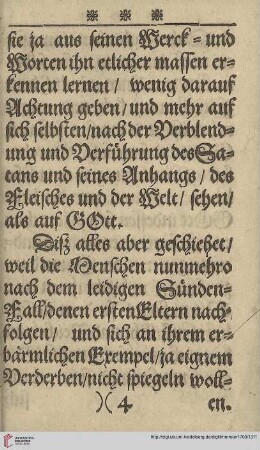 * * *
sie ja aus seinen Werck= und
Worten ihn etlicher massen er=
kennen lernen / wenig darauf
Achtung geben / und mehr auf
sich selbsten / nach der Verblend=
ung und Verführung des Sa=
tans und seines Anhangs / des
Fleisches und der Welt / sehen /
als auf GOtt.
Diß alles aber geschiehet /
weil die Menschen nunmehro
nach dem leidigen Sünden=
Fall / denen ersten Eltern nach=
folgen / und sich an ihrem er=
bärmlichen Exempel / ja eignem
Verderben / nicht spiegeln woll=
)( 4 en.
UNIVERSITÄTS-
BIBLIOTHEK
HEIDELBERG